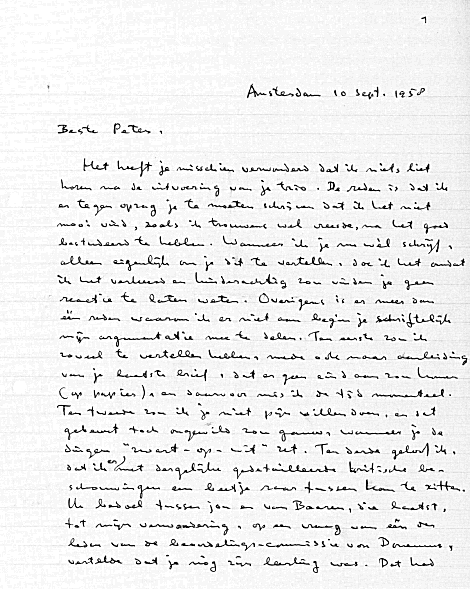 1
Amsterdam 10 sept. 1958
Beste Peter,
Het heeft je misschien verwonderd dat ik niets liet
horen na de uitvoering van je trio. De reden is dat ik
er tegen opzag je te moeten schrijven dat ik het niet
mooi vind, zoals ik trouwens wel vreesde, na het goed
bestudeerd te hebben. Wanneer ik je nu wèl schrijf,
alleen eigenlijk om je dit te vertellen, doe ik het omdat
ik het verkeerd en kinderachtig zou vinden je geen
reactie te laten weten. Overigens is er meer dan
één reden waarom ik er niet aan begin je schriftelijk
mijn argumentatie mee te delen. Ten eerste zou ik
zoveel te vertellen hebben, mede ook naar aanleiding
van je laatste brief, dat er geen eind aan zou komen
(op papier), en daarvoor mis ik de tijd momenteel.
Ten tweede zou ik je niet pijn willen doen, en dat
gebeurt toch ongewild zou gauw, wanneer je de
dingen "zwart-op-wit" zet. Ten derde geloof ik,
dat ik er met dergelijke gedetailleerde kritische be-
schouwingen een beetje raar tussen kom te zitten.
Ik bedoel tussen jou en van Baaren, die laatst,
tot mijn verwondering, op een vraag van één der
leden van de beoordelings-commissie van Donemus,
vertelde dat je nog zijn leerling was. Dat had